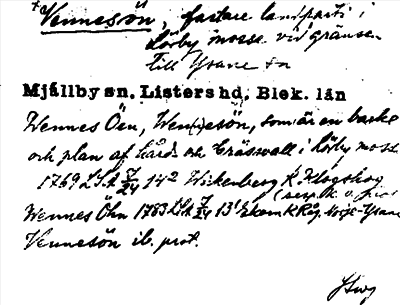 Vennesön, fastare landparti i
hörby mosse vid gränsen
till Ysane sn
Mjällby sn. Listers hd. Blek. län
Wennes Öen, Wen(n)esön, som är en backe
och plan af hård och Gräswall i hörby mosse
1769 LSA 14² Wickenberg K. Klogskog
Wennes Öhn 1783 LSA 13¹ Ekom K Råg. Ysane
Vennesön ib. prot.